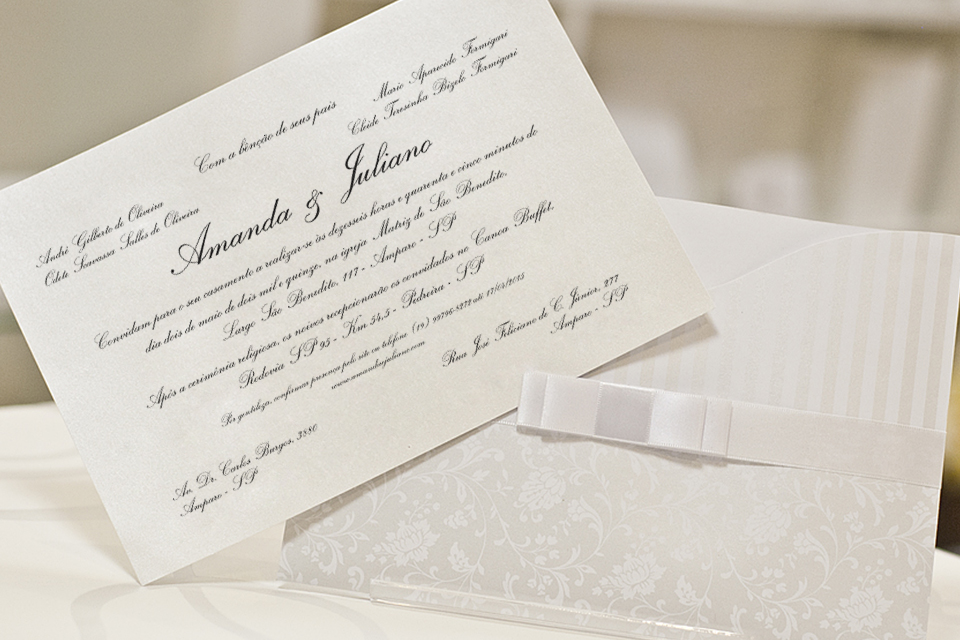 Com a bênção de seus pais
André Gilberto de Oliveira
Odete Scavassa Salles de Oliveira
Mario Aparecido Formigari
Cleide Teresinha Bizelo Formigari
Amanda & Juliano
Convidam para o seu casamento a realizar-se às dezesseis horas e quarenta e cinco minutos do
dia dois de maio de dois mil e quinze, na igreja Matriz de São Benedito,
Largo São Benedito, 117 - Amparo - SP
Após a cerimônia religiosa, os noivos recepcionarão os convidados no Canoa Buffet,
Rodovia SP 95 - Km 54,5 - Pedreira - SP
Por gentileza, confirmar presença pelo site ou telefone (19) 99796-8272 até 17/04/2015
www.amandaejuliano.com
Av. Dr. Carlos Burgos, 3880
Amparo - SP
Rua José Feliciano de C. Júnior, 277
Amparo - SP